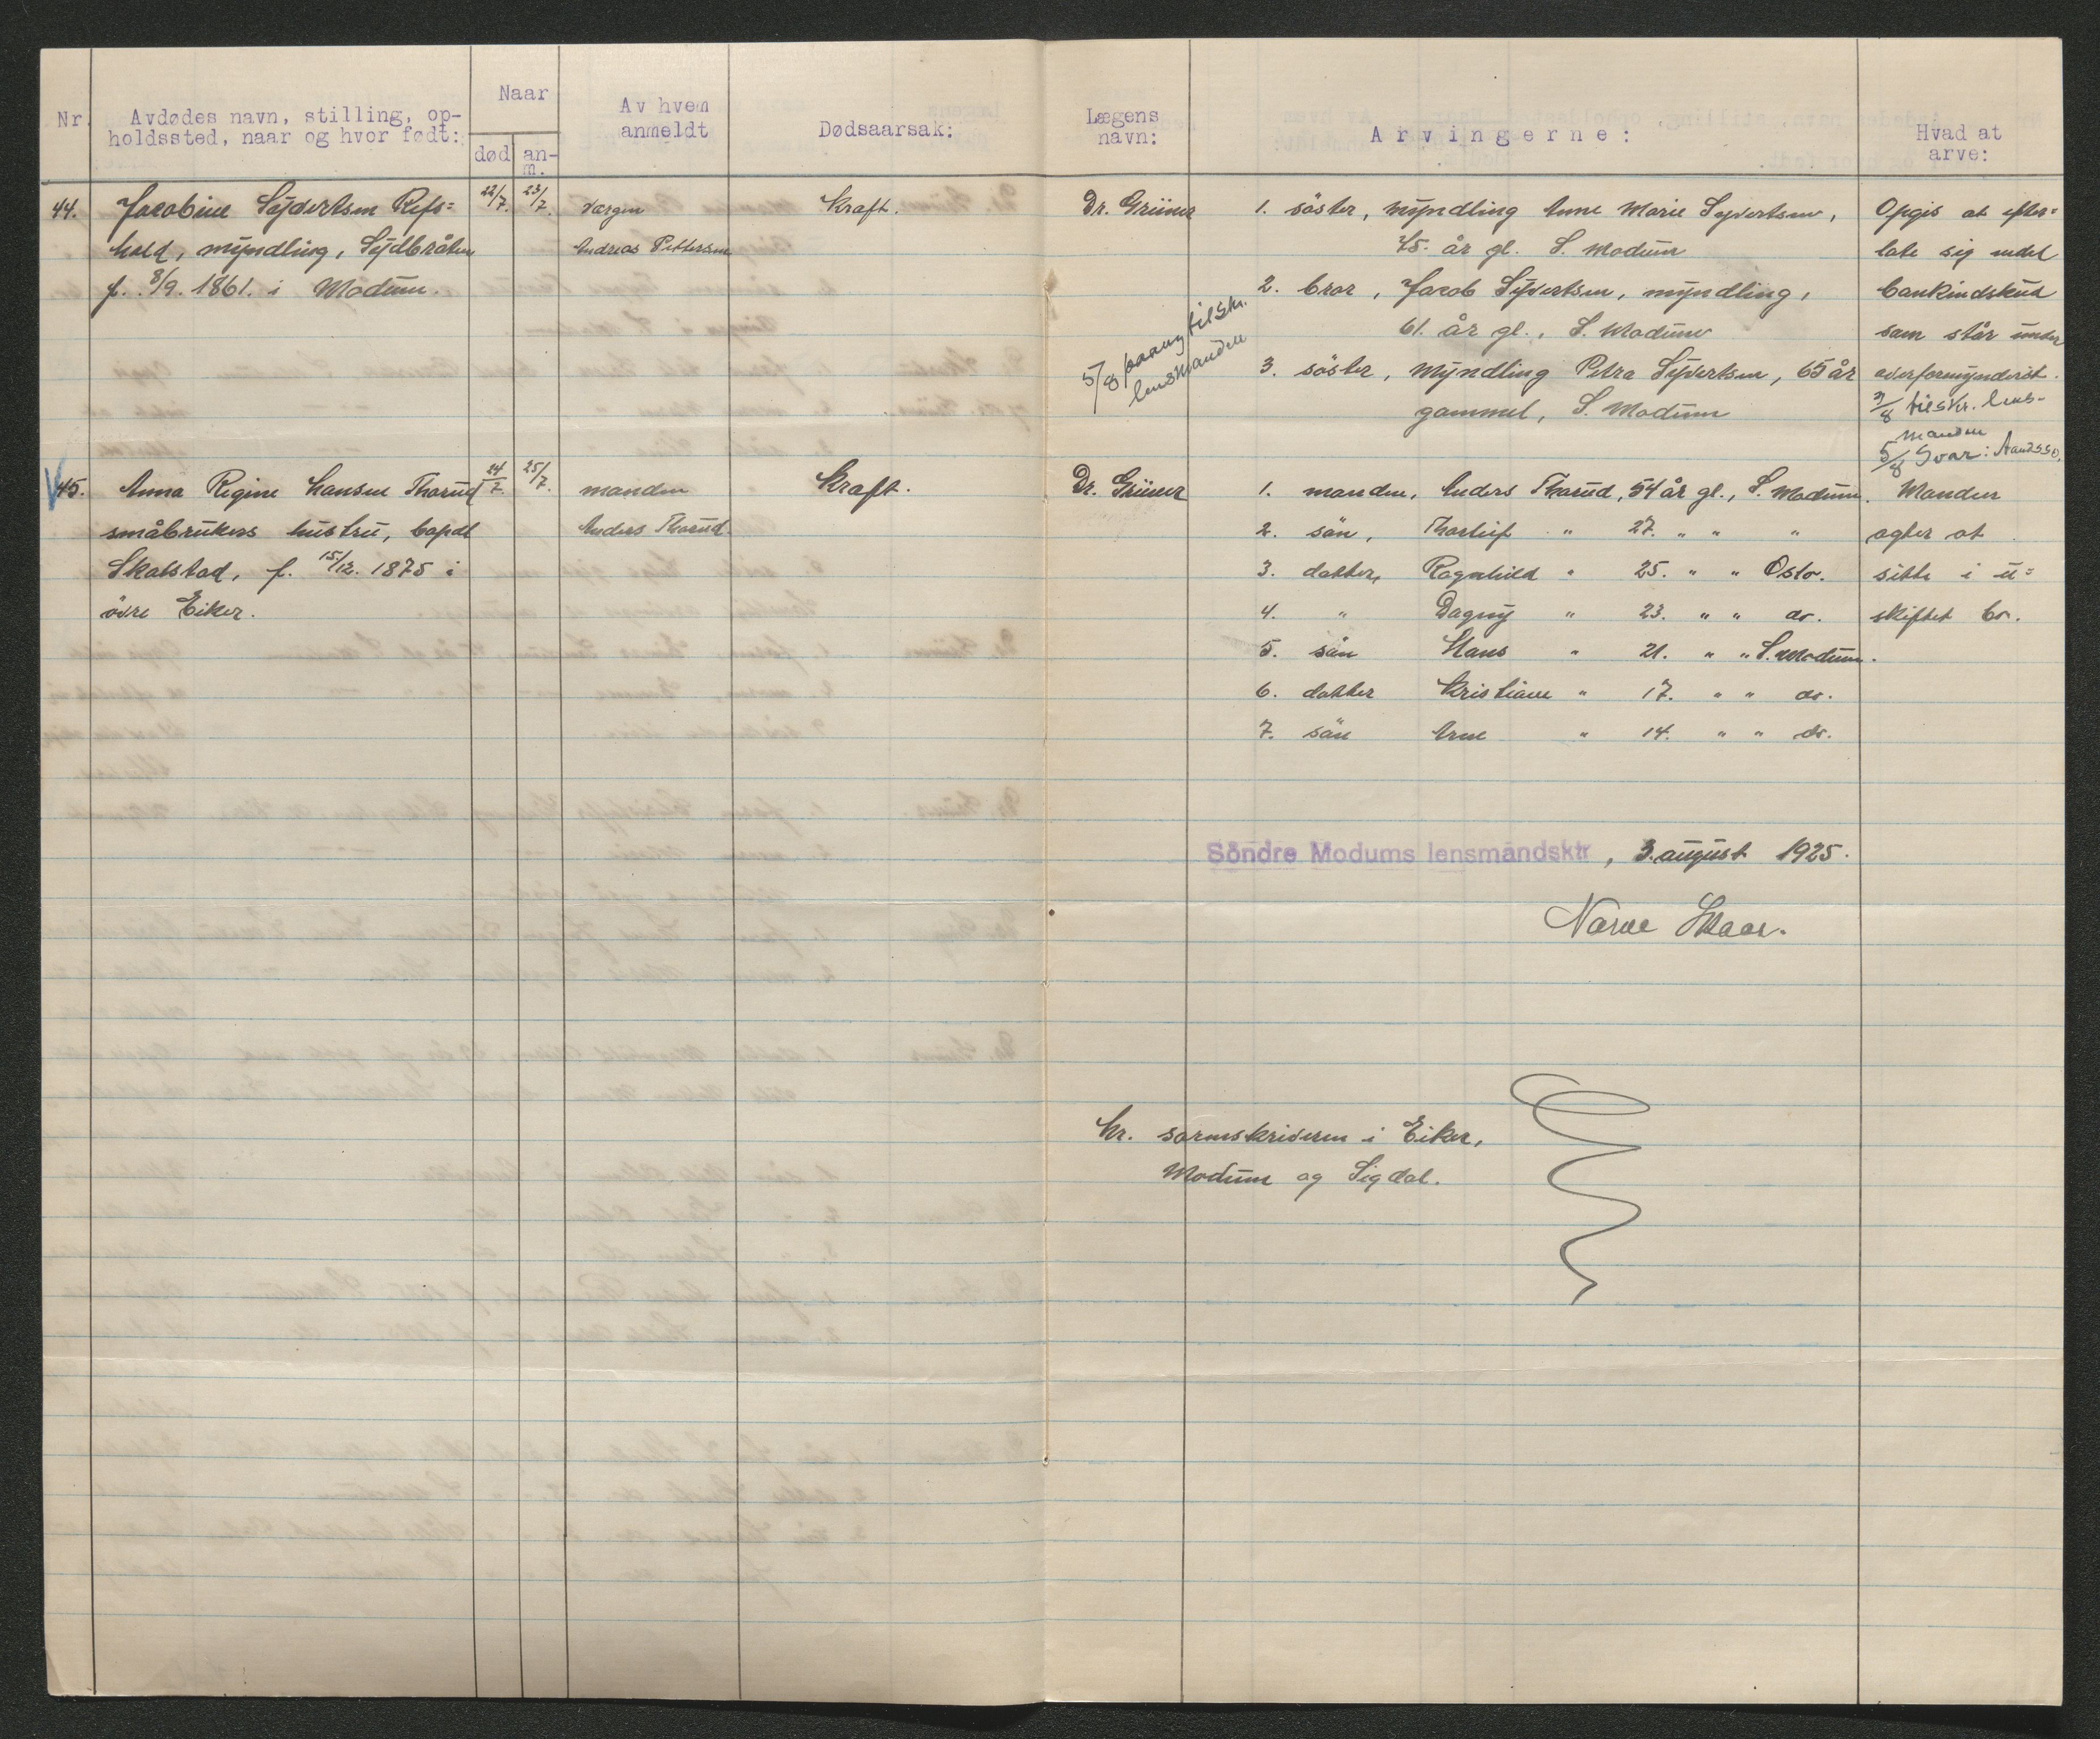 Nr. Avdødes navn, stilling, op-
holdssted, naar og hvor født:
Naar
død an-
m.
Av hvem
anmeldt
Dødsaarsak:
Lægens
navn:
Arvingerne:
Hvad at
arve:
44. Jacobine Syvertsen Refs=
hald, myndling, Sydbråten
f. 8/9. 1861. i Modum.
22/7. 23/7.
værgen
Andreas Pettersen
Kraft.
Dr. Grüner
1. söster, myndling Anne Marie Syvertsen,
75. år gl. S. Modum
2. bror, Jacob Syvertsen, myndling,
61. år gl., S. Modum
3. söster, myndling Petra Syvertsen, 65 år
gammel, S. Modum
5/8 paany tilskr.
lensmanden
Opgis at efter=
late sig endel
bankindskud
som står under
overformynderiet.
3/8 tilskr. lens-
manden
5/8 Svar:
45. Anna Regine Hansen Thorud
småbrukers hustru, bopæl
Skalstad, f. 15/12. 1875 i
övre Eiker.
24/7 25/7.
manden
Anders Thorud.
Kraft.
Dr. Grüner
1. manden, Anders Thorud, 54 år gl., S. Modum.
2. sön, Thorleif " 27. " " "
3. datter, Ragnhild " 25. " " Oslo.
4. " Dagny " 23. " " do.
5. sön Hans " 21. " " S. Modum.
6. datter Kristiane " 17. " " do.
7. sön Arne " 14. " " do.
Manden
agter at
sitte i u=
skiftet bo.
Söndre Modums lensmandsktr, 3. august 1925.
Narve Skaar.
Hr. sorenskriveren i Eiker,
Modum og Sigdal.